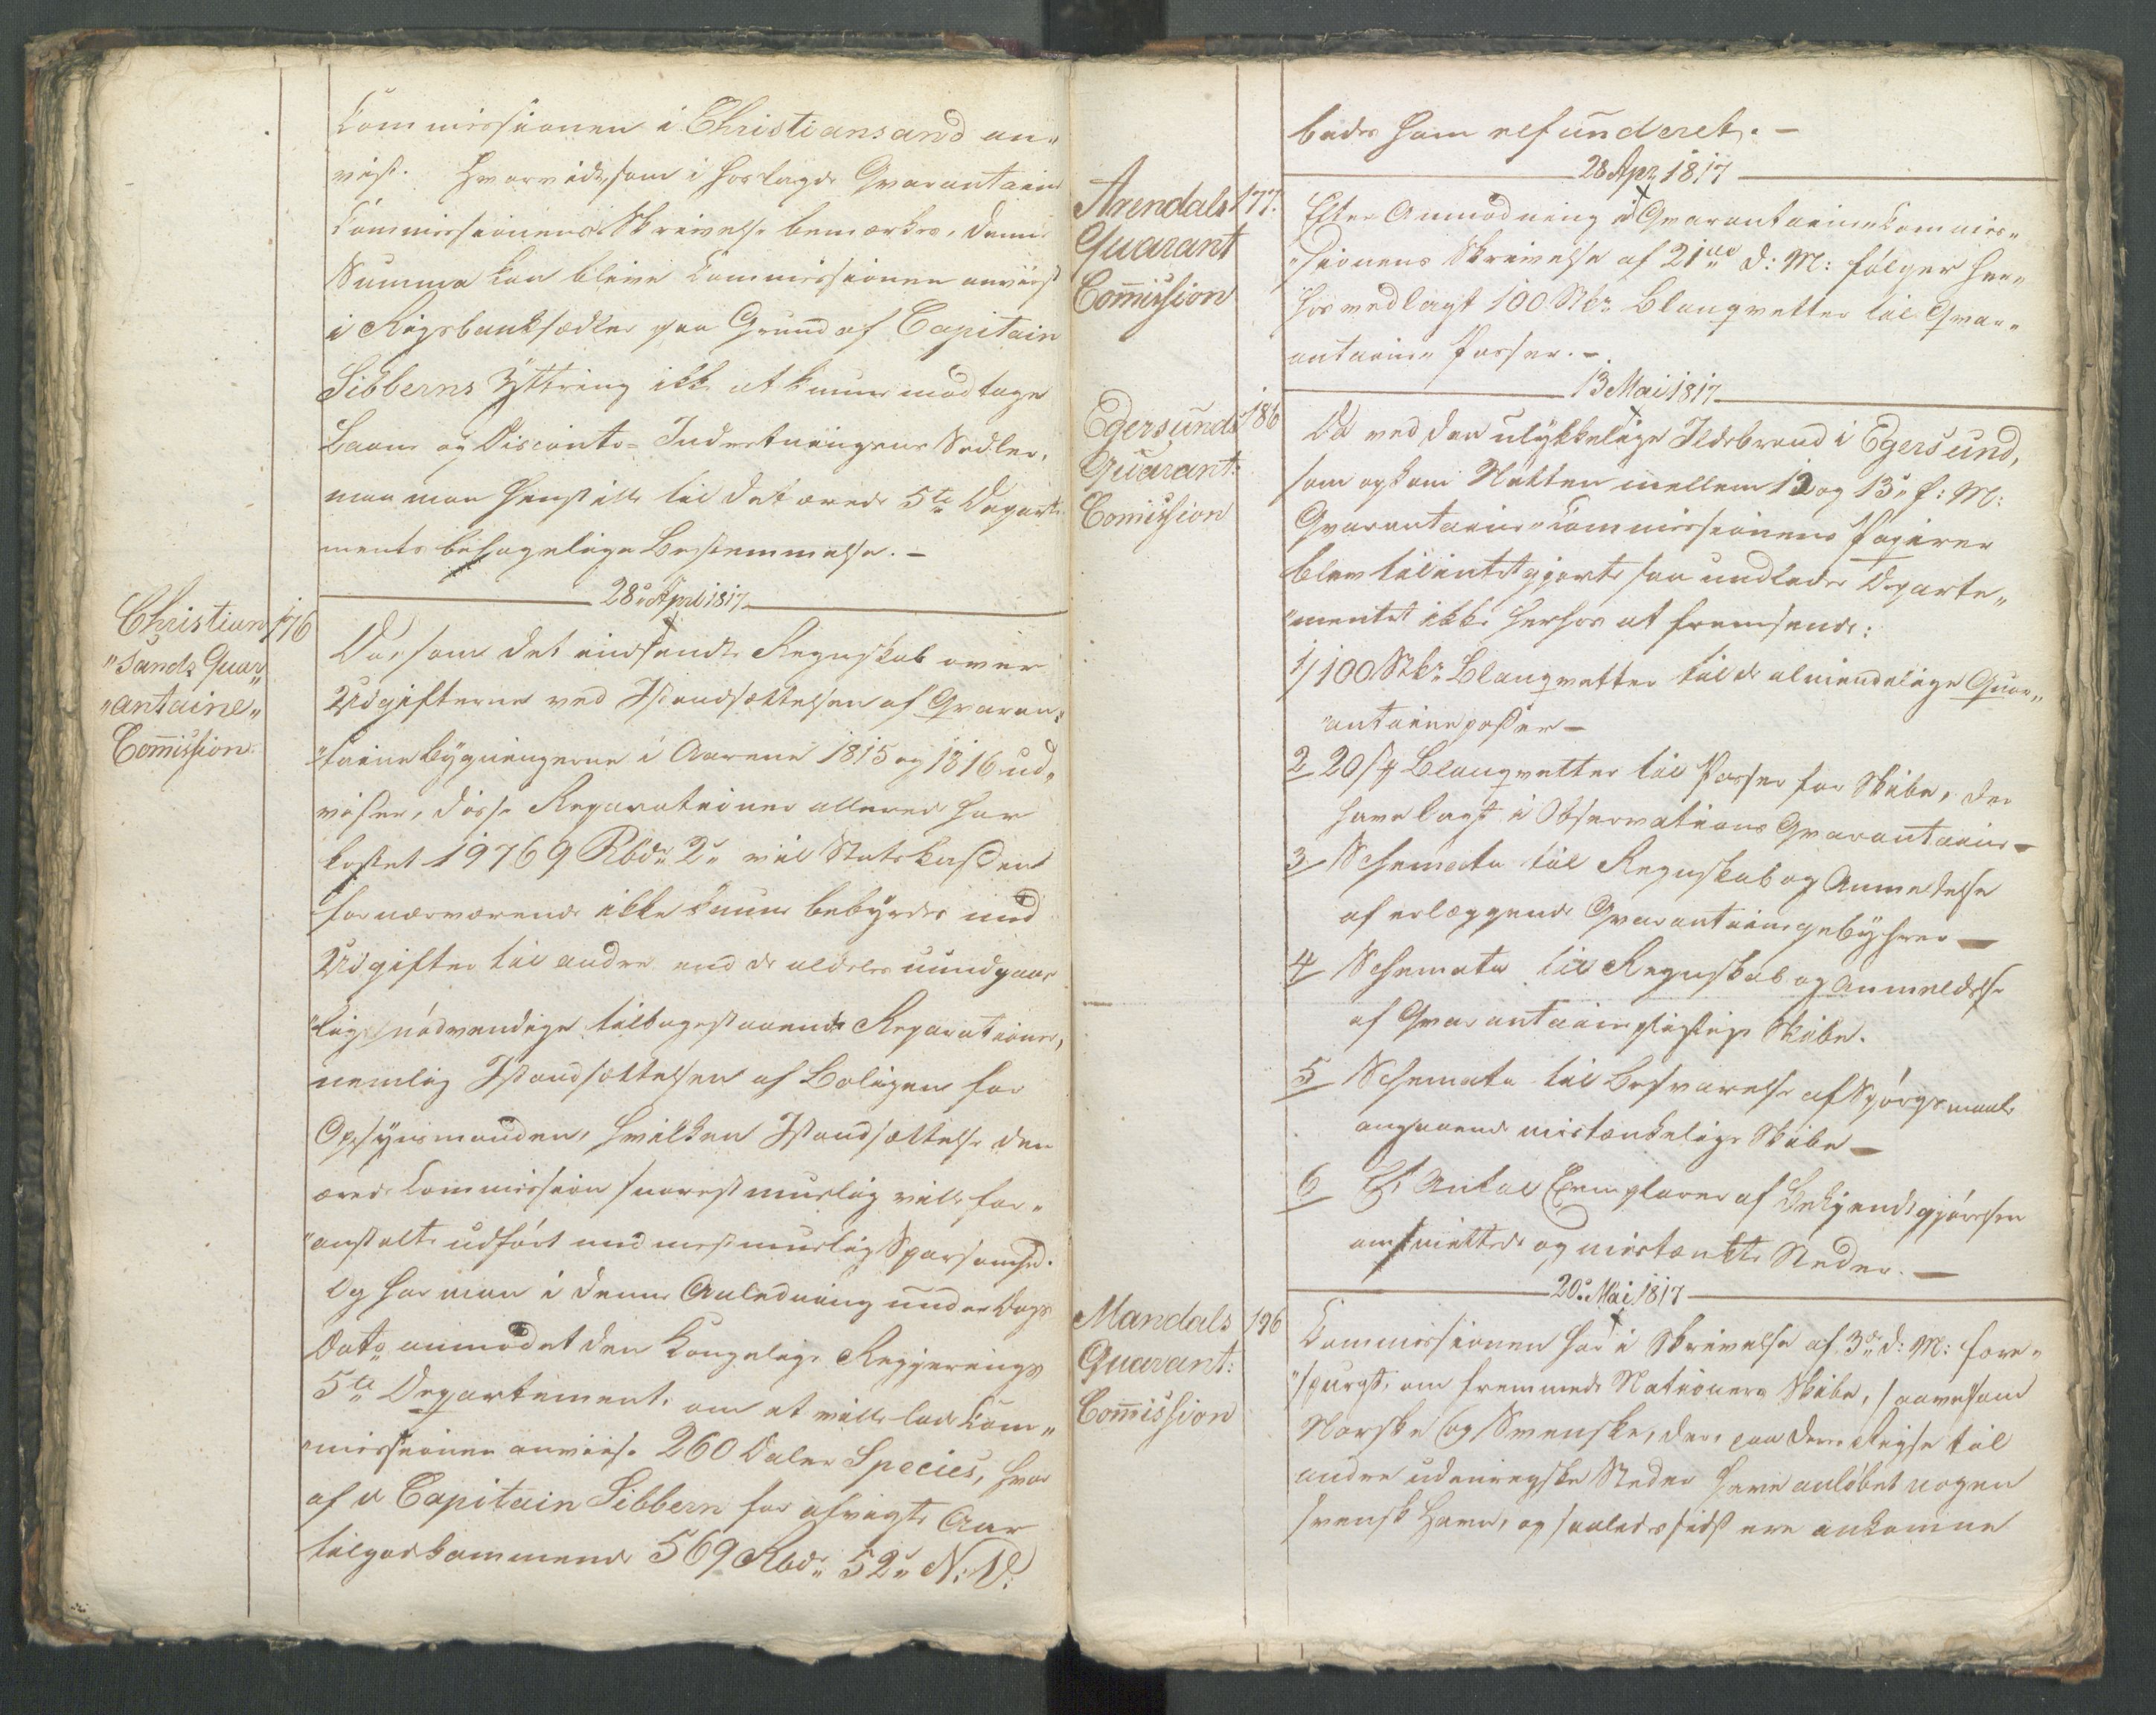 Commissionen i Christiansand an„
vist. Hvorvidt, som i hoslagde Qvarantaine
Commissionens Skrivelse bemærkes, denne
Summa kan blive Commissionen anviist
i Rigsbanksedler paa Grund af Capitain
Sibberns Yttring ikke at kunne modtage
Laane og Disconto-Indretningens Sedler,
maa man henstille til det ærede 5te Departe
ments behagelige Bestemmelse. –
28de April 1817
Christian
„sands Quar„
„antaine„
Com̄ission
176
Da, som det indsendte Regnskab over
Udgifterne ved Istandsættelsen af Qvaran„
„tainebygningerne i Aarene 1815 og 1816 ud„
viser, disse Reparationer allerede har
kostet 19769 Rbdr 2s vil Statskassen
for nærværende ikke kunne bebyrdes med
Udgifter til andre end de aldeles uundgaae
„lige nödvendige tilbagestaaende Reparationer,
nemlig Istandsættelsen af Boligen for
Opsynsmanden, hvilken Istandsættelse den
ærede Commission snarest muelig ville for„
„anstalte udfört med mest muelig Sparsomhed.
Og har man i denne Anledning under Dags
Dato anmodet den Kongelige Regjerings
5te Departement, om at ville lade Com„
„missionen anviise 260 Daler Species, hvor
af de Capitain Sibbern for afvigte Aar
tilgodekommende 569 Rbdr 52s N: V:
bedes ham refunderet. –
28 Apr 1817
Arendals
Quarant
Com̄ission
177.
Efter Anmodning i Qvarantaine Commis„
„sionens Skrivelse af 21de d: M: fölger her„
hos vedlagt 100 Stkr Blanqvetter til Qvar„
antaine Passer. –
13 Mai 1817
Egersunds
Quarant:
Com̄ission
186
Da ved den ulykkelige Ildebrand i Egersund,
som opkom Natten mellem 12 og 13de f: M:
Qvarantaine-Commissionens Papirer
blev tilintetgjorte saa undlader Departe„
„mentet ikke herhos at fremsende:
1/ 100 Stkr Blanqvetter til de almindelige Quar„
„antainepasser –
2 20 Blanqvetter til Passer for Skibe, der
have lagt i Observations Qvarantaine –
3/ Schemata til Regnskab og Anmeldelse
af erlæggende Qvarantainegebyhrer –
4/ Schemata til Regnskab og Anmeldelse
af Qvarantainepligtige Skibe.
5/ Schemata til Besvarelse af Spörgsmaale
angaaende mistænkelige Skibe –
6 Et Antal Exemplarer af Bekjendtgjörelsen
om smittede og mistænkte Steder. –
20de Mai 1817
Mandals
Quarant:
Com̄ission
196
Commissionen har i Skrivelse af 3de d: M: fore„
„spurgt, om fremmede Nationers Skibe, saavelsom
Norske og Svenske, der, paa deres Reyse til
andre udenrigske Steder have anlöbet nogen
svensk Havn, og saaledes sidst ere ankomne